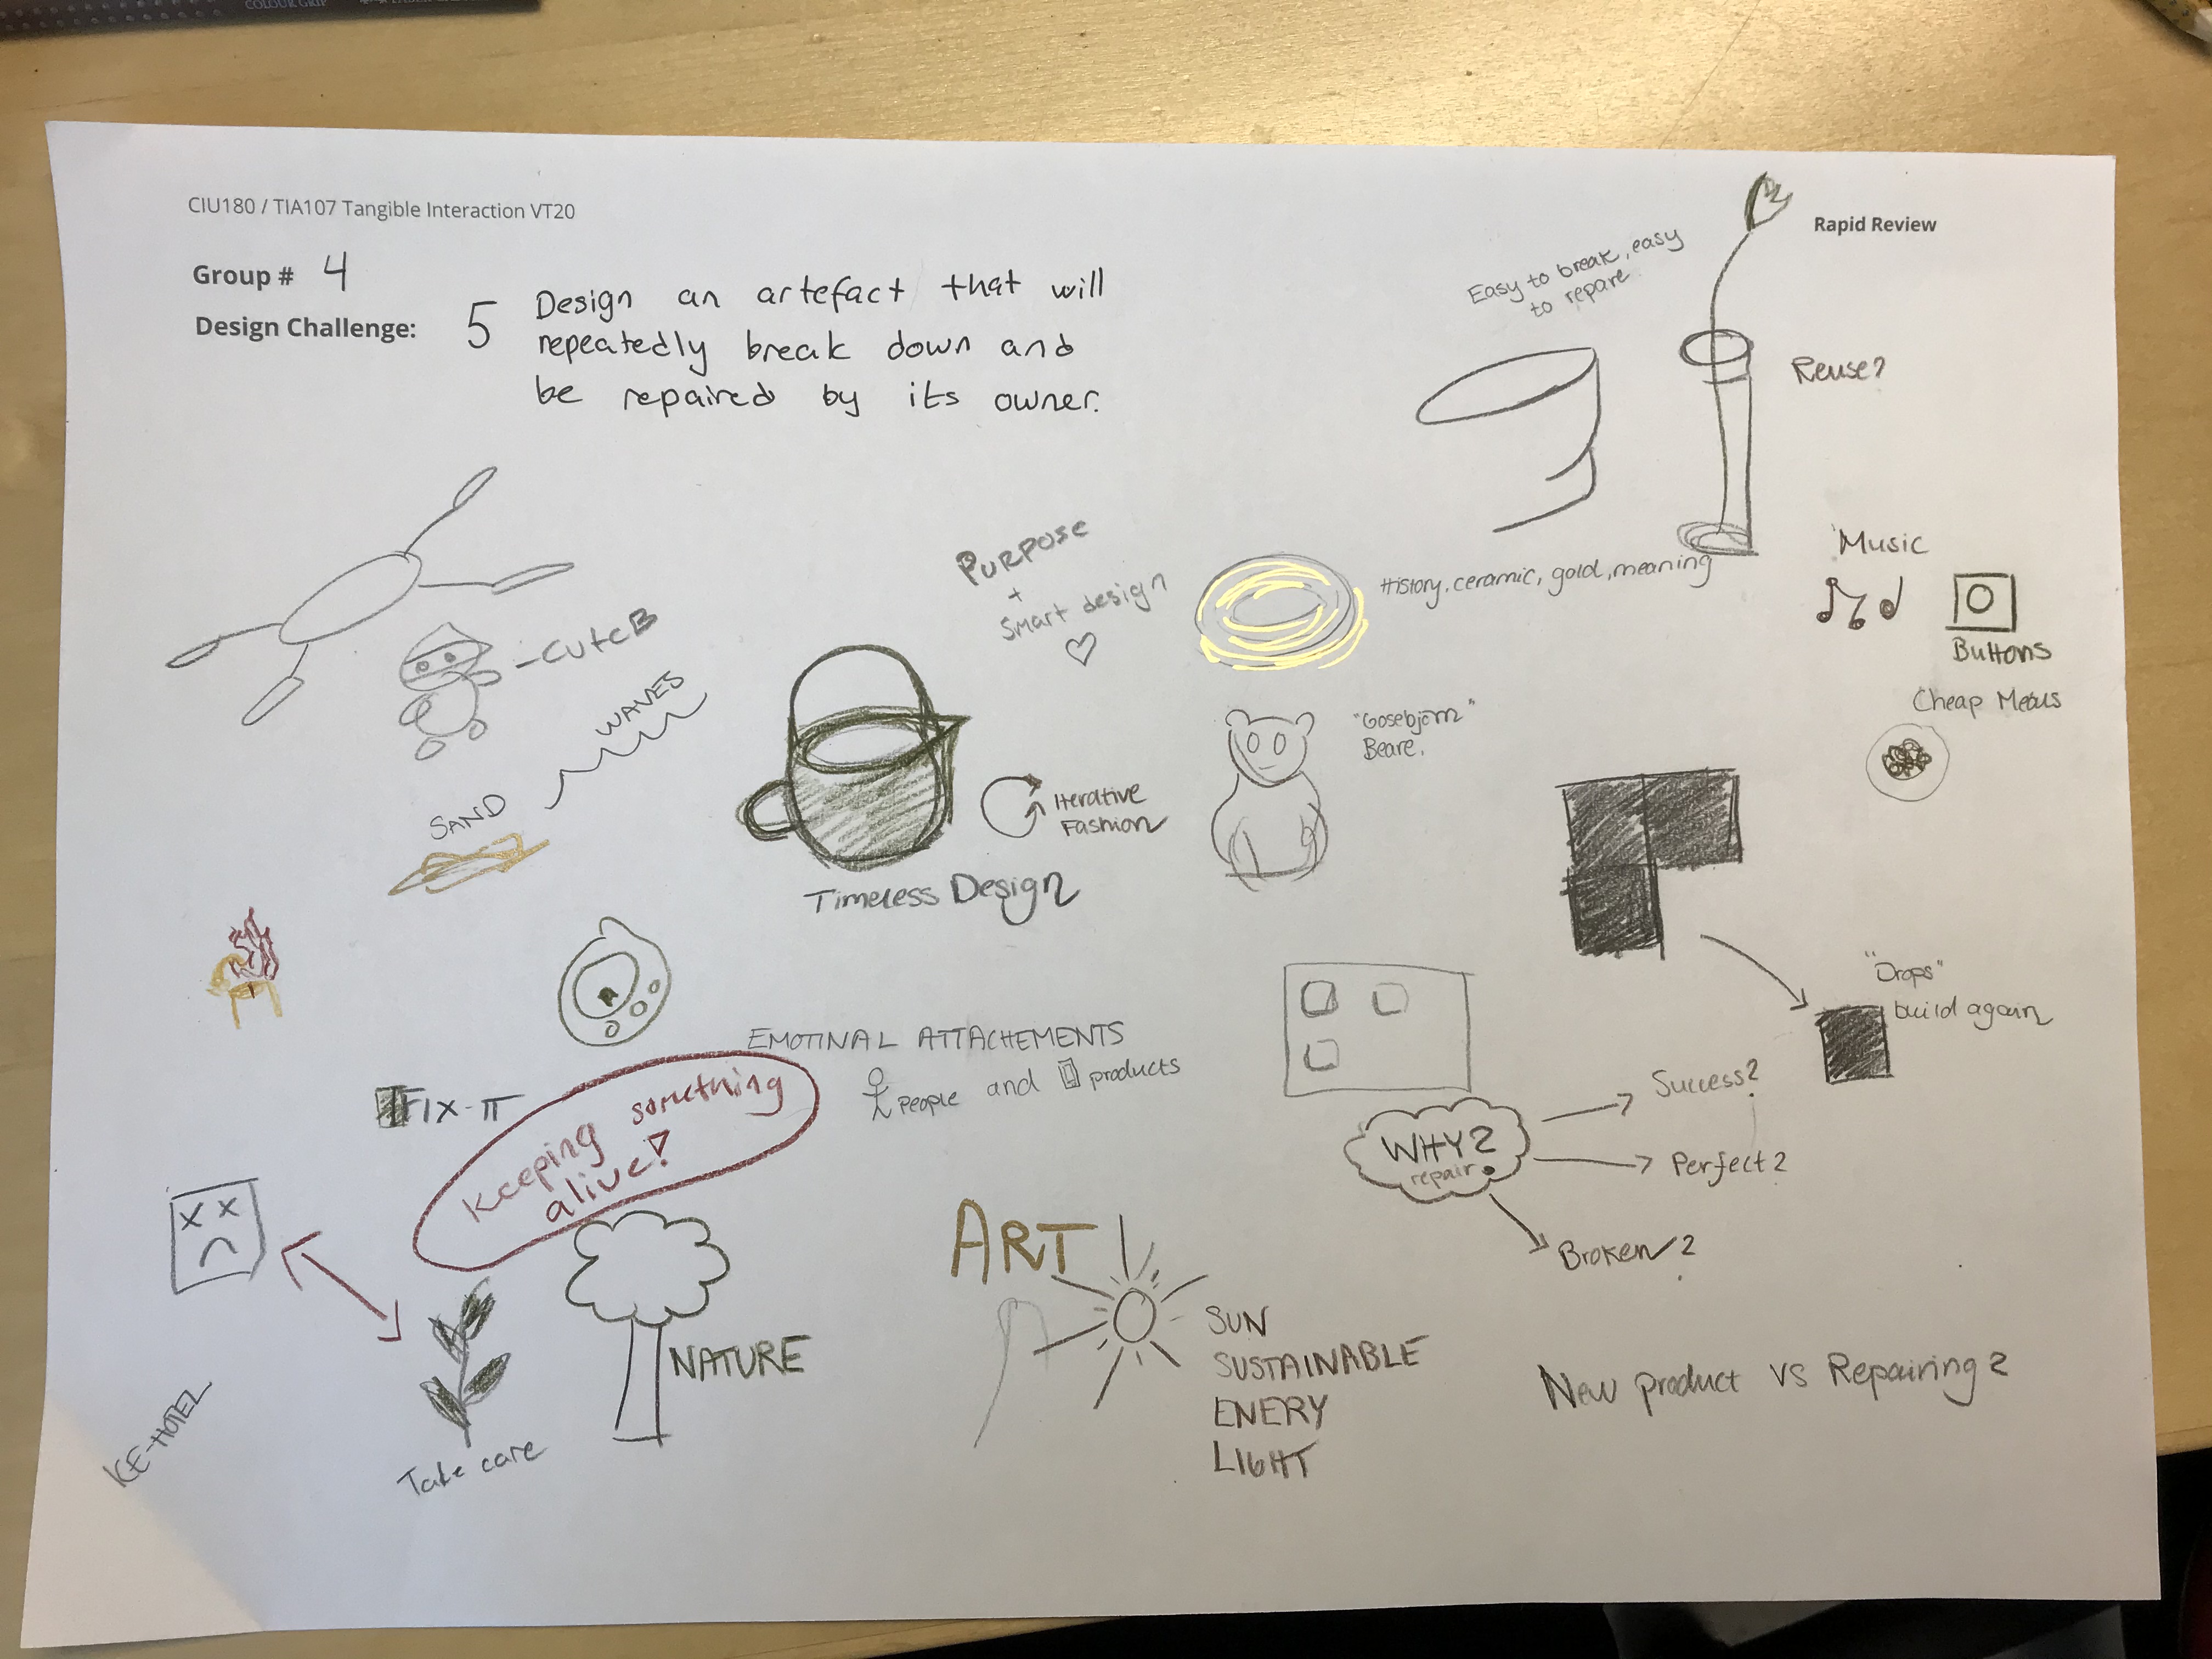 COLOUR GRIP
CIU180 / TIA107 Tangible Interaction VT20
Rapid Review
Group # 4
Design Challenge: 5 Design an artefact that will
repeatedly break down and
be repaired by its owner.
Easy to break, easy
to repare
Reuse?
PURPOSE
+
Smart design
History, ceramic, gold, meaning
Music
Buttons
Cheap Meals
-CuteB
WAVES
SAND
Iterative
Fashion
Timeless Design
"Gosebjörn"
Beare.
"Drops"
build again
EMOTINAL ATTACHEMENTS
people and products
FIX-π
Keeping something
alive!
WHY?
repair
Success?
Perfect?
Broken?
ART
SUN
SUSTAINABLE
ENERY
LIGHT
NATURE
Take care
ICE-HOTEL
New product vs Repairing?